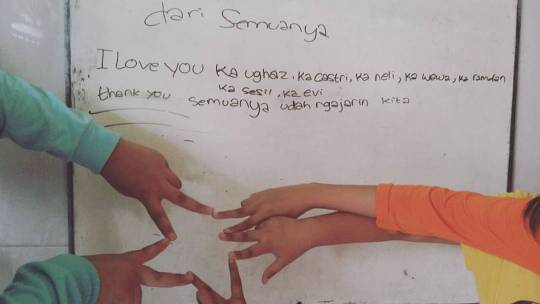 dari Semuanya
I love you ka ughaz, ka castri, ka neli, ka wawa, ka ramdan
ka sesil, ka evi
thank you semuanya udah ngajarin kita